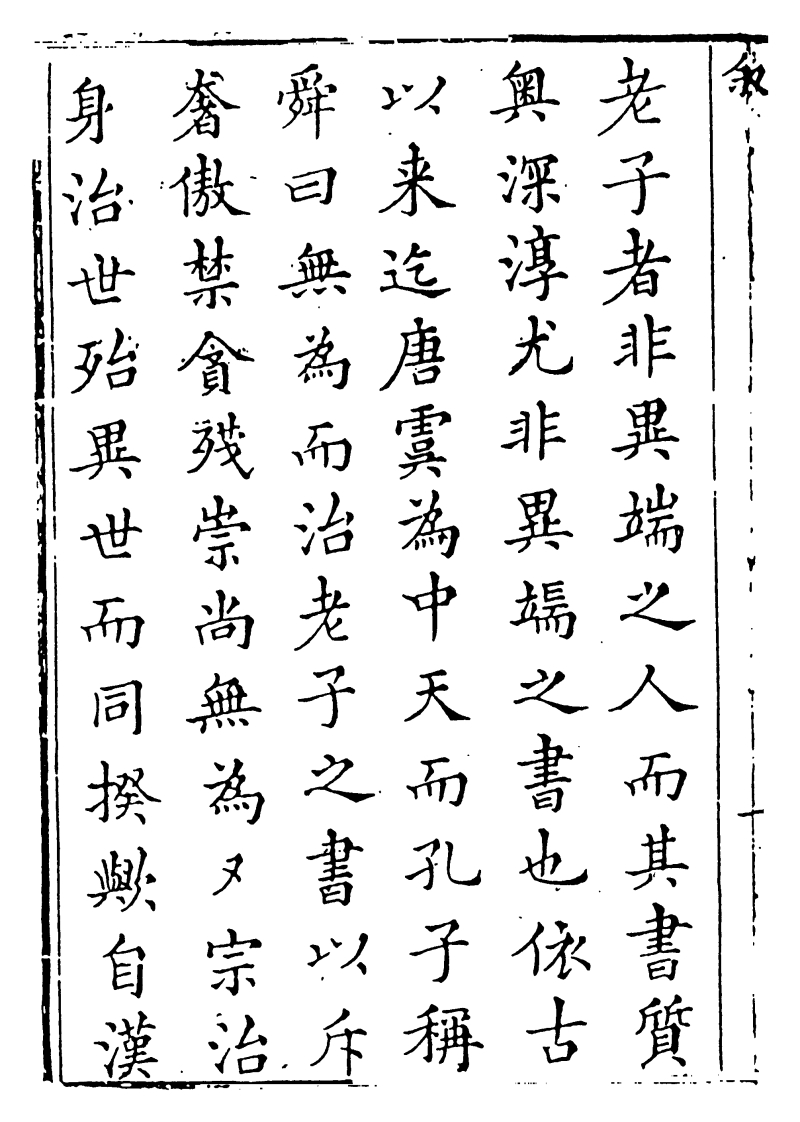 叙
一
老子者非異端之人而其書質
奥深淳尤非異端之書也依古
以来迄唐虞為中天而孔子稱
舜曰無為而治老子之書以斥
奢傲禁貪殘崇尚無為々宗治
身治世殆異世而同揆歟自漢